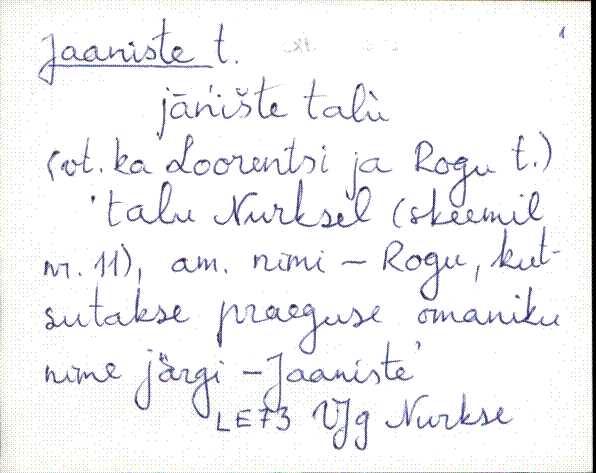 1
Jaaniste t.
jāńište talù
(vt. ka Loorentsi ja Rogu t.)
'talu Nurksel (skeemil
nr. 11), am. nimi – Rogu, kut-
sutakse praeguse omaniku
nime järgi – Jaaniste'
LE73 VJg Nurkse